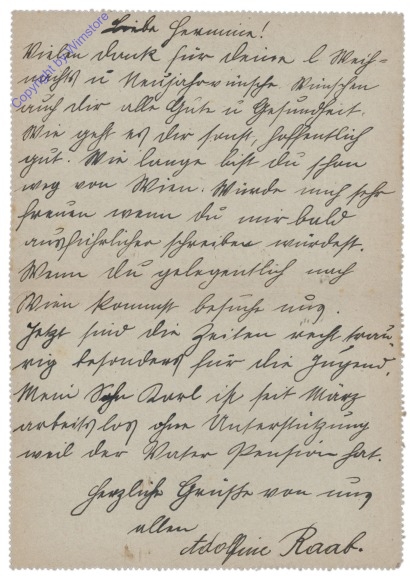 Liebe Hermine!
Vielen Dank für deine l Weih=
nachts u Neujahrwünsche Wünschen
auch dir alle Gute u Gesundheit.
Wie geht es dir sonst, hoffentlich
gut. Wie lange bist du schon
weg von Wien. Würde mich sehr
freuen wenn du mir bald
ausführlicher schreiben würdest.
Wenn du gelegentlich nach
Wien kommst besuche uns.
Jetzt sind die Zeiten recht trau=
rig besonders für die Jugend.
Mein Sohn Karl ist seit März
arbeitslos ohne Unterstützung
weil der Vater Pension hat.
Herzliche Grüße von uns
allen
Adolfine Raab.
Copyright by Wimstore